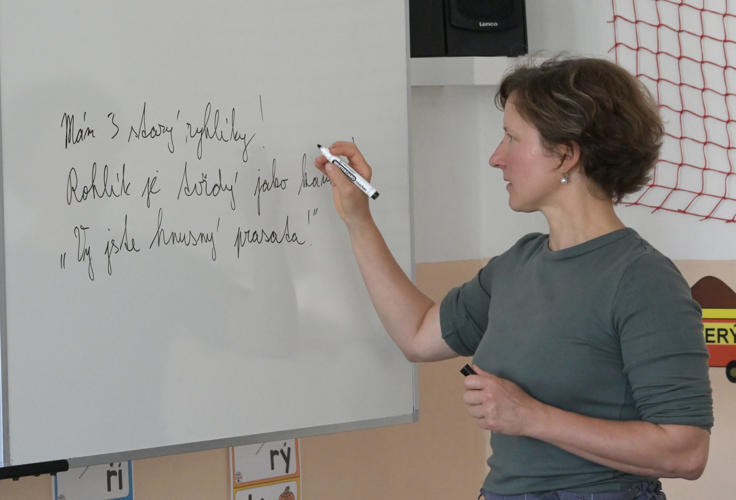 Lenco
Mám 3 starý rohlíky!
Rohlík je tvrdý jako
„Vy jste hnusný prasata!“
ERÝ
ří
rý